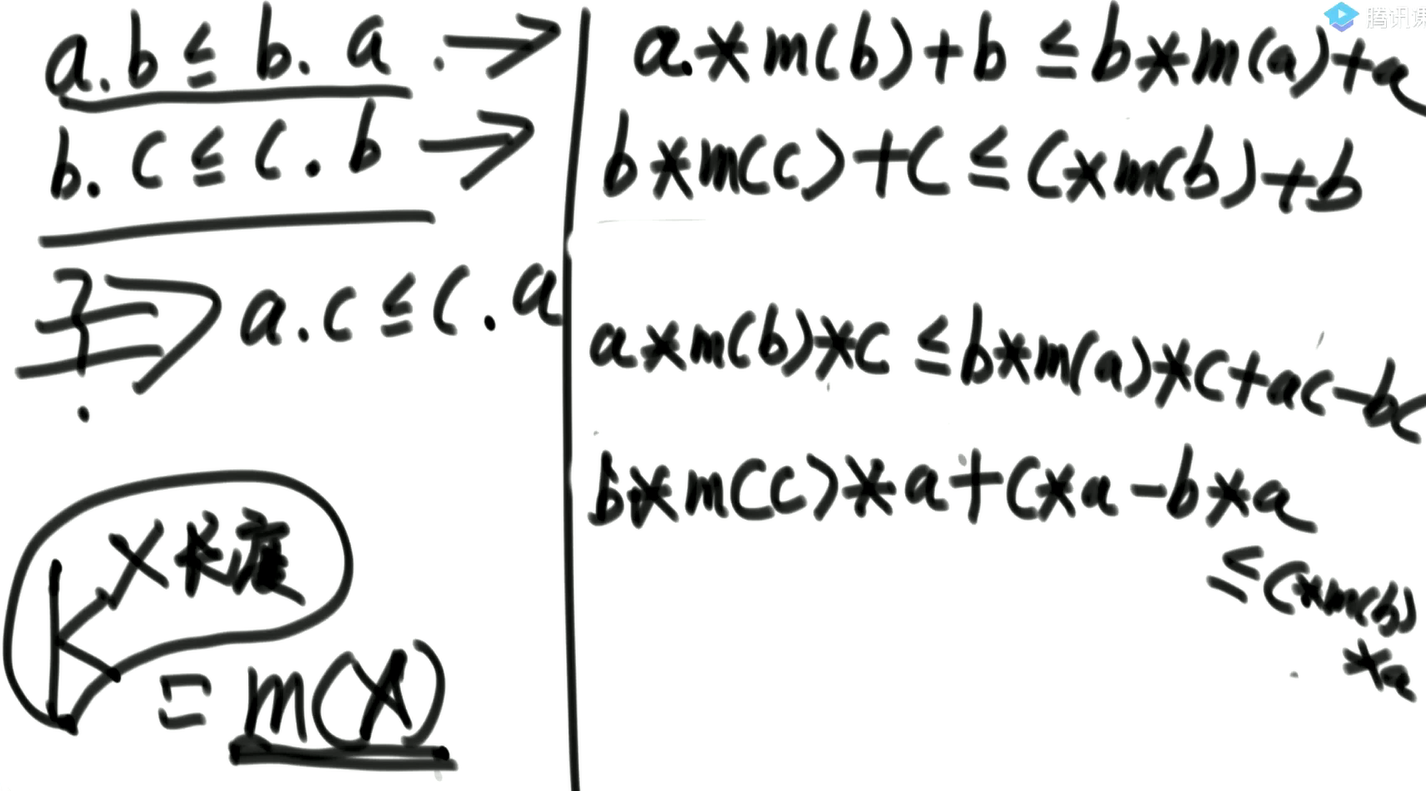 a.b ≤ b.a →
b.c ≤ c.b →
? ⇒ a.c ≤ c.a
K^X长度 = m(X)
腾讯课
a.*m(b)+b ≤ b*m(a)+a
b*m(c)+c ≤ c*m(b)+b
a*m(b)*c ≤ b*m(a)*c+ac-bc
b*m(c)*a+c*a-b*a
≤ c*m(b)
*a